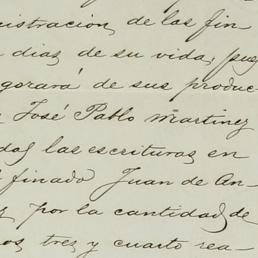 nistración de las fin
s dias de su vida, pues
gozará de sus produc-
José Pablo Martinez
das las escrituras en
l finado Juan de An-
z por la cantidad de
os, tres y cuarto rea-